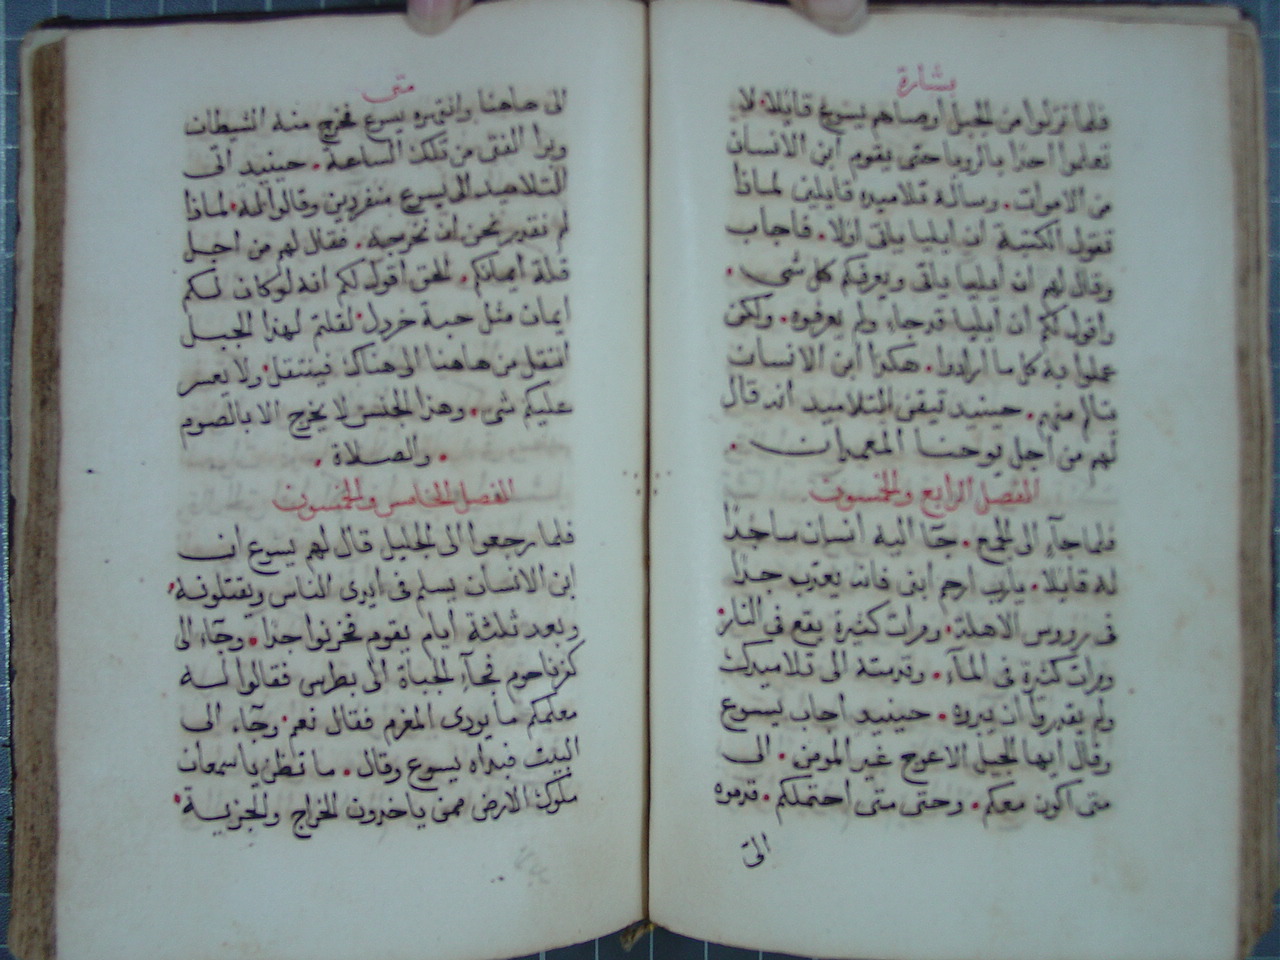 بشارة
فلما نزلوا من الجبل اوصاهم يسوع قايلا لا
تعلموا احدًا بالرويا حتى يقوم ابن الانسان
من الاموات. وساله تلاميذه قايلين لماذا
تقول الكتبة ان ايليا ياتى اولا. فاجاب
وقال لهم ان ايليا ياتى ويعرفكم كل شى.
واقول لكم ان ايليا قد جاء ولم يعرفوه. ولكن
عملوا به كل ما ارادوا. هكذا ابن الانسان
منهم. حينيد تيقن التلاميد انه قال
لهم من اجل يوحنا المعمدان.
الفصل الرابع والخمسون
فلما جآء الى الجمع. جآ اليه انسان ساجدًا
له قايلا. يارب ارحم ابنى فانه يعذب جدًا
فى رووس الاهلة. ومرات كثيرة يقع فى النار
ومرات كثيرة فى المآء. وقدمته الى تلاميدك
ولم يقدروا ان يبروه. حينيد اجاب يسوع
وقال ايها الجيل الاعوج غير المومن. الى
متى اكون معكم. وحتى متى احتملكم. قدموه
الىّ
متى
الى هاهنا وانتهره يسوع فخرج منه الشيطان
وبرا الفتى من تلك الساعة. حينيد اتى
التلاميد الى يسوع منفردين وقالوا له لماذا
لم نقدر نحن ان نخرجه. فقال لهم من اجل
قلة ايمانكم. الحق اقول لكم انه لو كان لكم
ايمان مثل حبة خردل لقلتم لهذا الجبل
انتقل من هاهنا الى هناك فينتقل ولا يعسر
عليكم شى. وهذا الجنس لا يخرج الا بالصوم
. والصلاة .
الفصل الخامس والخمسون
فلما رجعوا الى الجليل قال لهم يسوع ان
ابن الانسان يسلم فى ايدى الناس ويقتلونه
وبعد ثلثة ايام يقوم فحزنوا جدا. وجآء الى
كفرناحوم فجآء الجباة الى بطرس فقالوا له
معلمكم ما يودى المغرم فقال نعم وجآء الى
البيت فبداه يسوع وقال. ما تظن يا سمعان
ملوك الارض ممن ياخدون الخراج والجزية